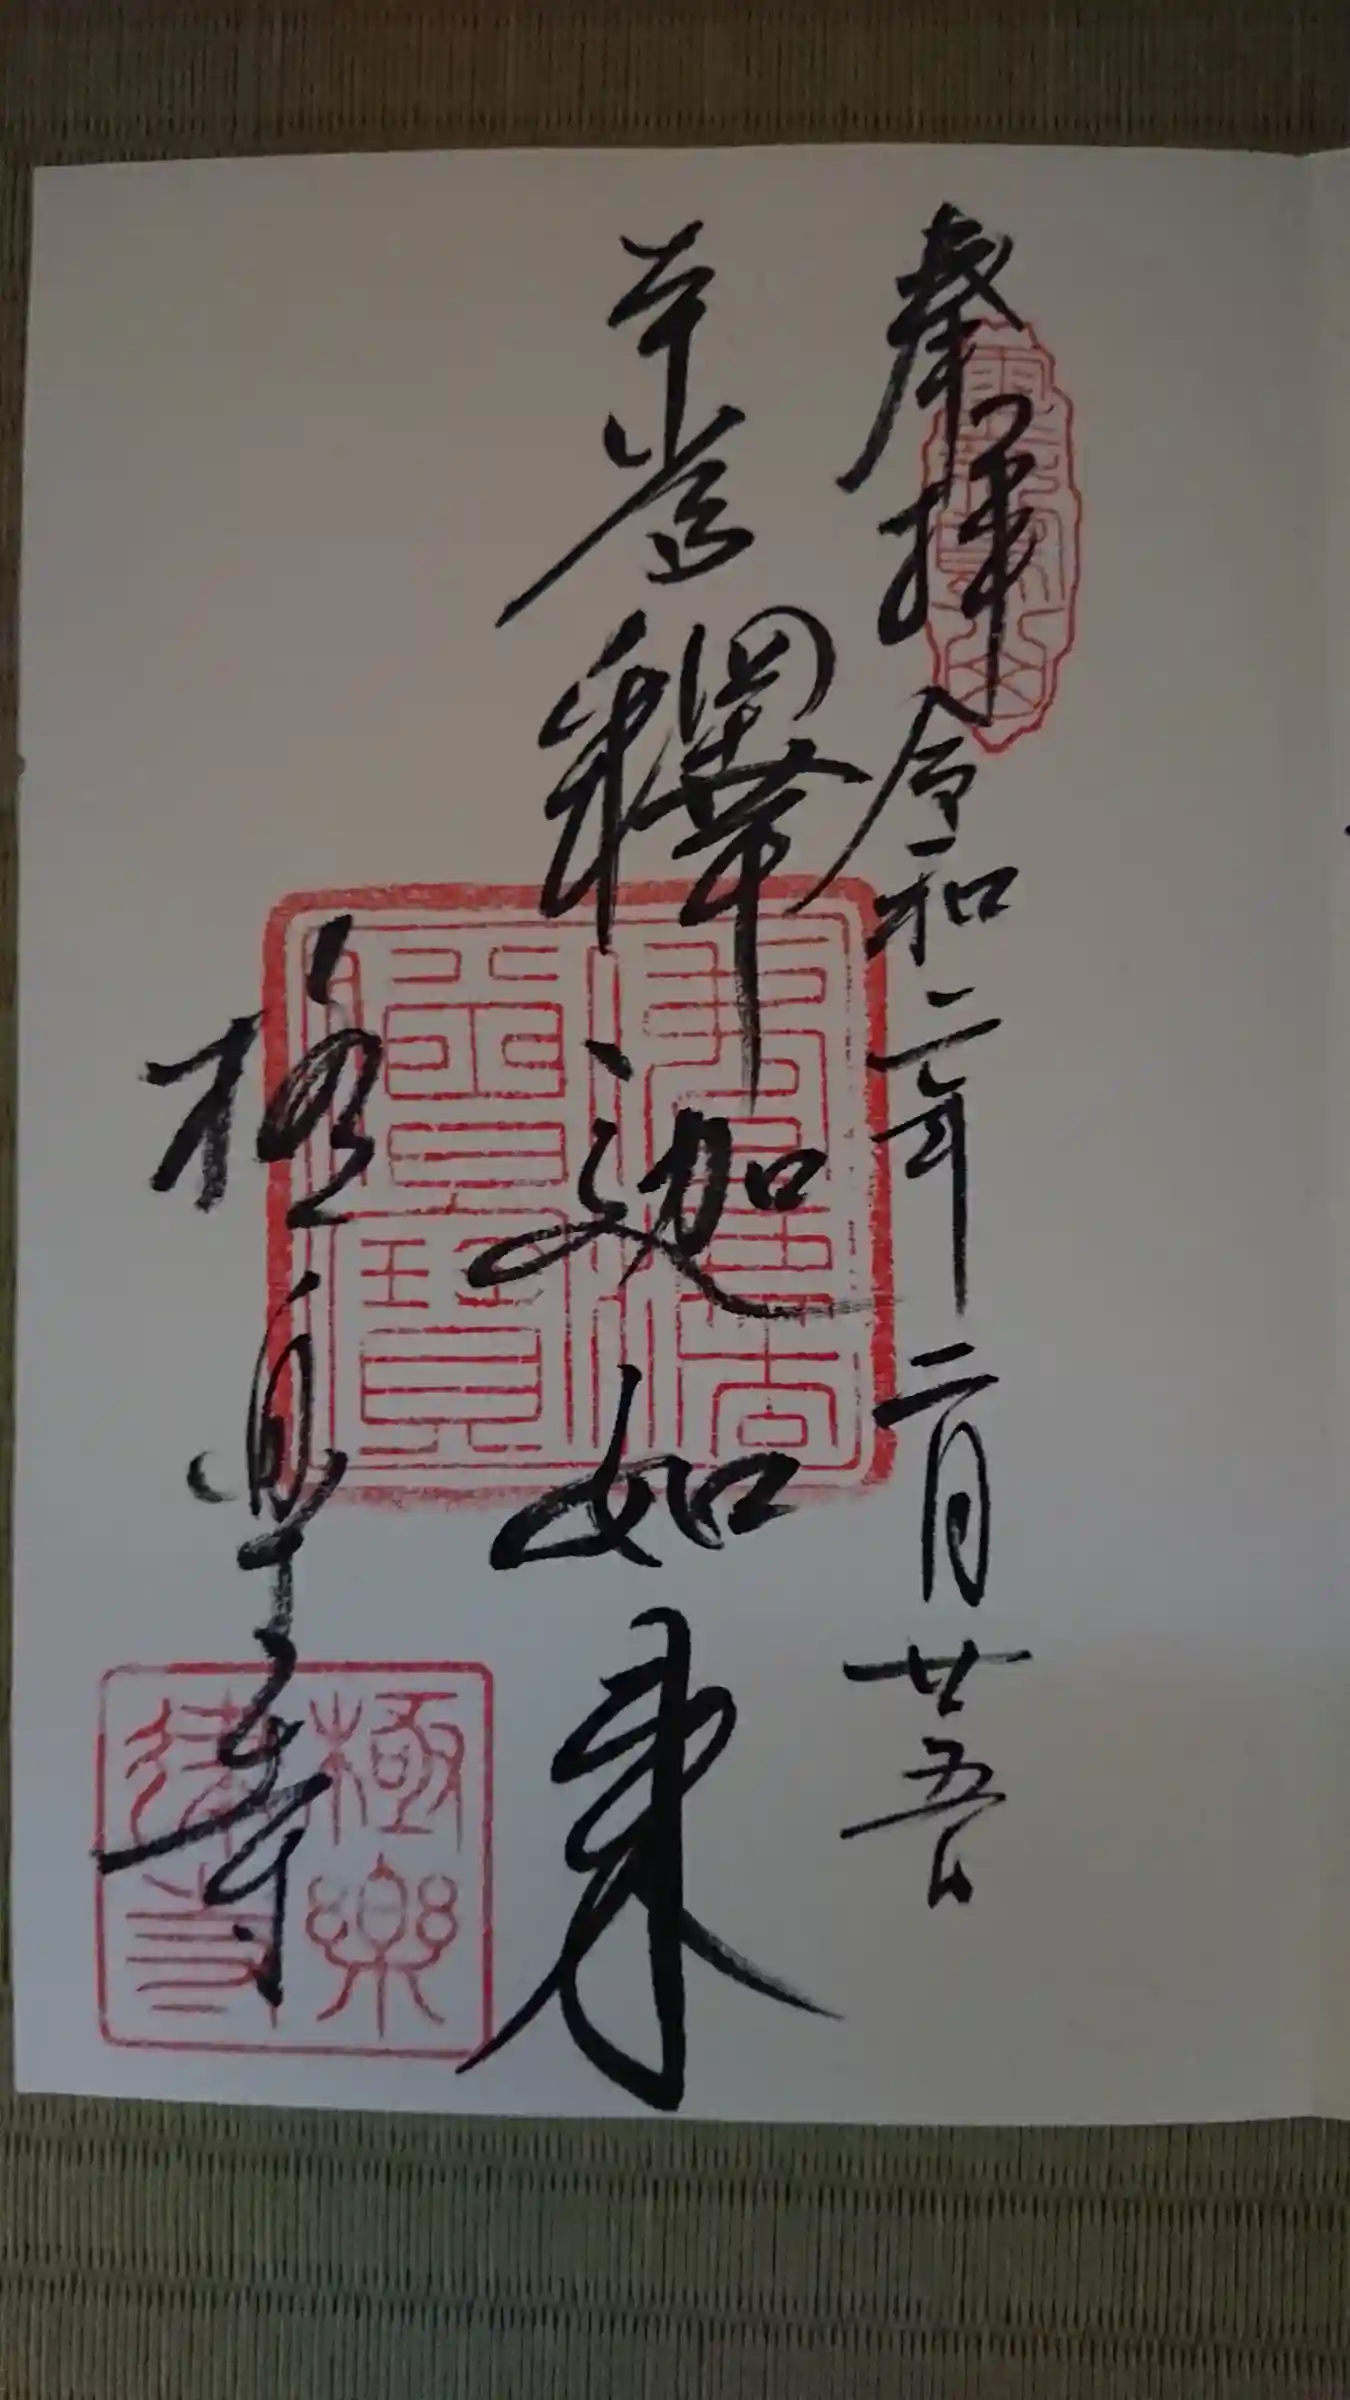 奉拝 令和二年二月廿五日
本尊 釋迦如来
極楽寺
極樂律寺